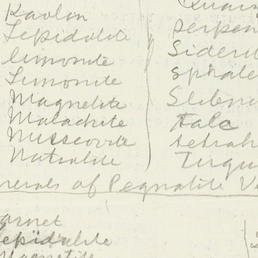 Kaolin
Lepidolite
limonite
Limonite
Magnetite
Malachite
Muscovite
Natrolite
Quar
Serpen
Sideri
Sphale
Talc
Tetrah
Turqu
nerals of Pegmatite Ve
arnet
epidolite